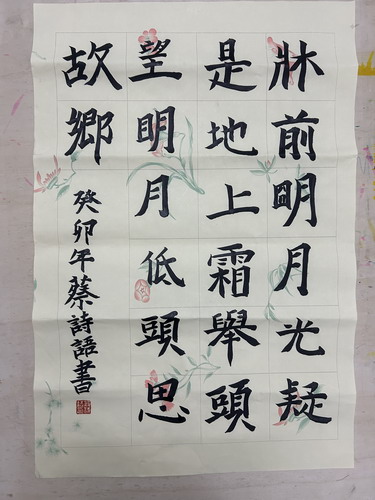 牀前明月光疑
是地上霜舉頭
望明月低頭思
故鄉
癸卯年蔡詩語書